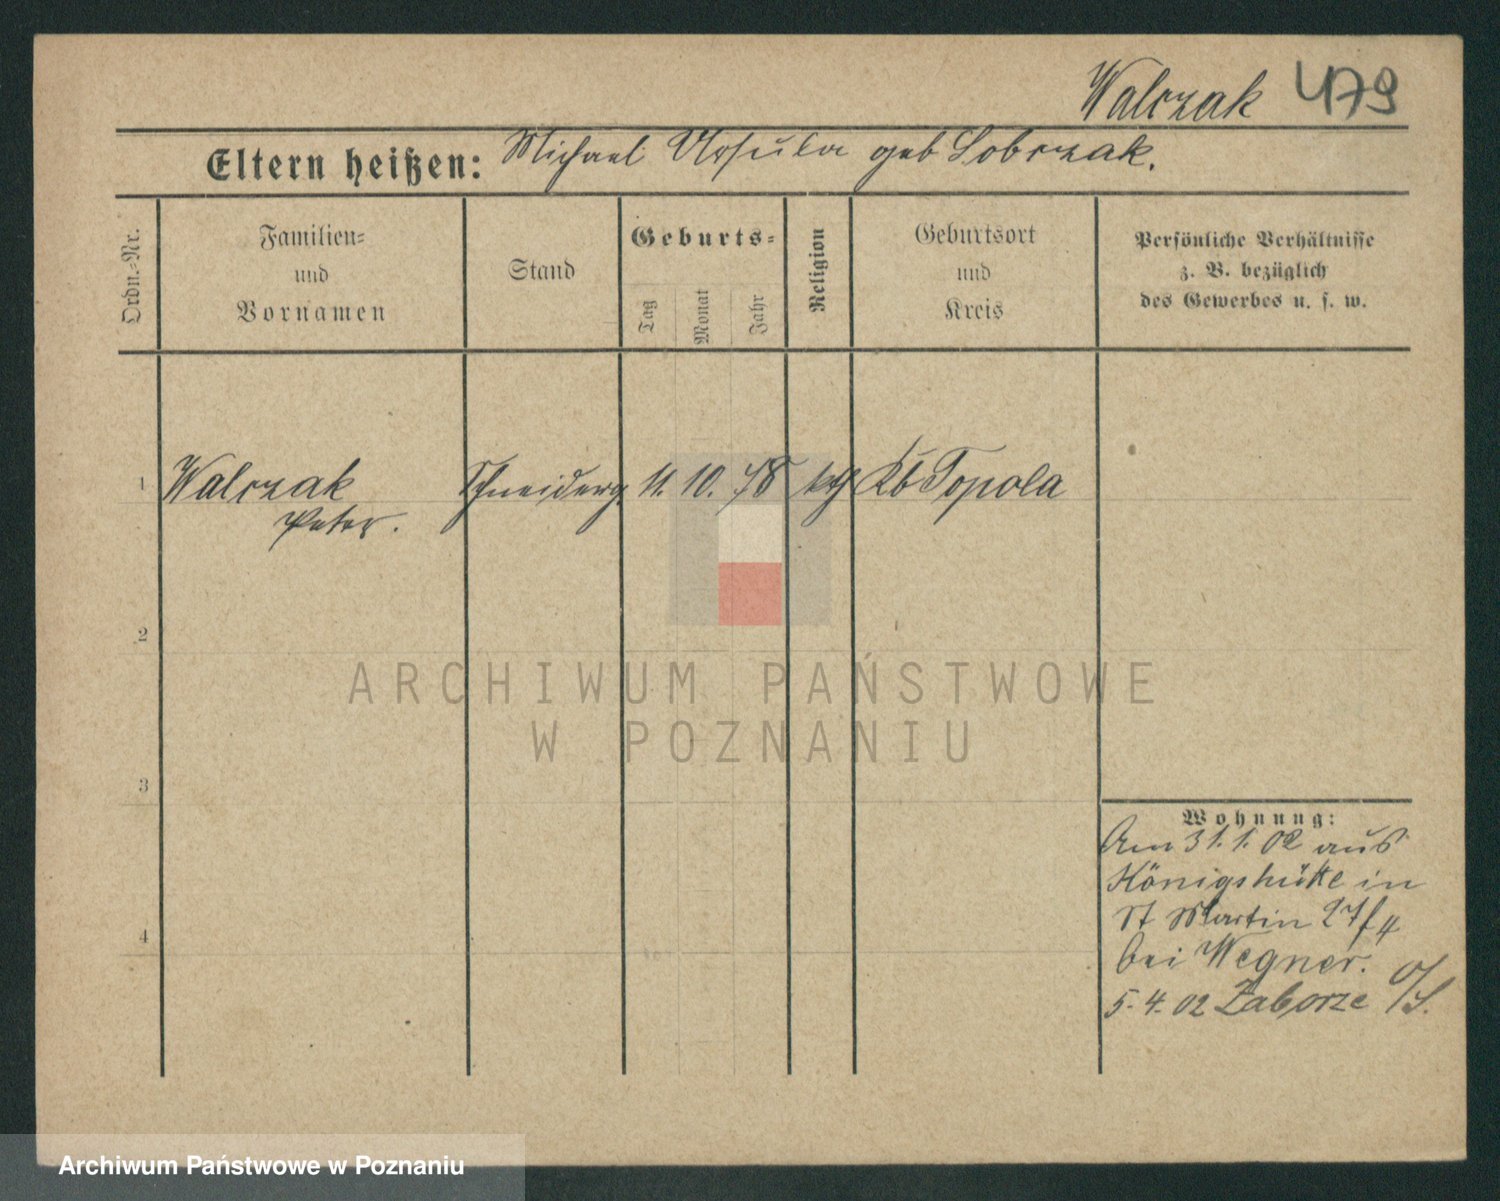 Walczak 479
Eltern heißen: Michael Ursula geb Sobczak.
Ordn.-Nr.
Familien-
und
Vornamen
Stand
Geburts-
Tag
Monat
Jahr
Religion
Geburtsort
und
Kreis
Persönliche Verhältnisse
z. B. bezüglich
des Gewerbes u. s. w.
1 Walczak Schneiderg. 11. 10. 78 kth Topola
Peter.
2
3
4
Wohnung:
Am 31.1.02 aus
Königshütte in
St Martin 27/4
bei Wegner.
5.4.02 Zaborze O/S.
ARCHIWUM PAŃSTWOWE
W POZNANIU
Archiwum Państwowe w Poznaniu